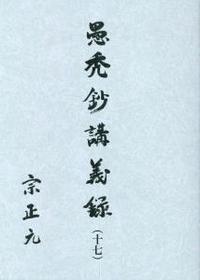 愚禿鈔講義録
（十七）
宗正元